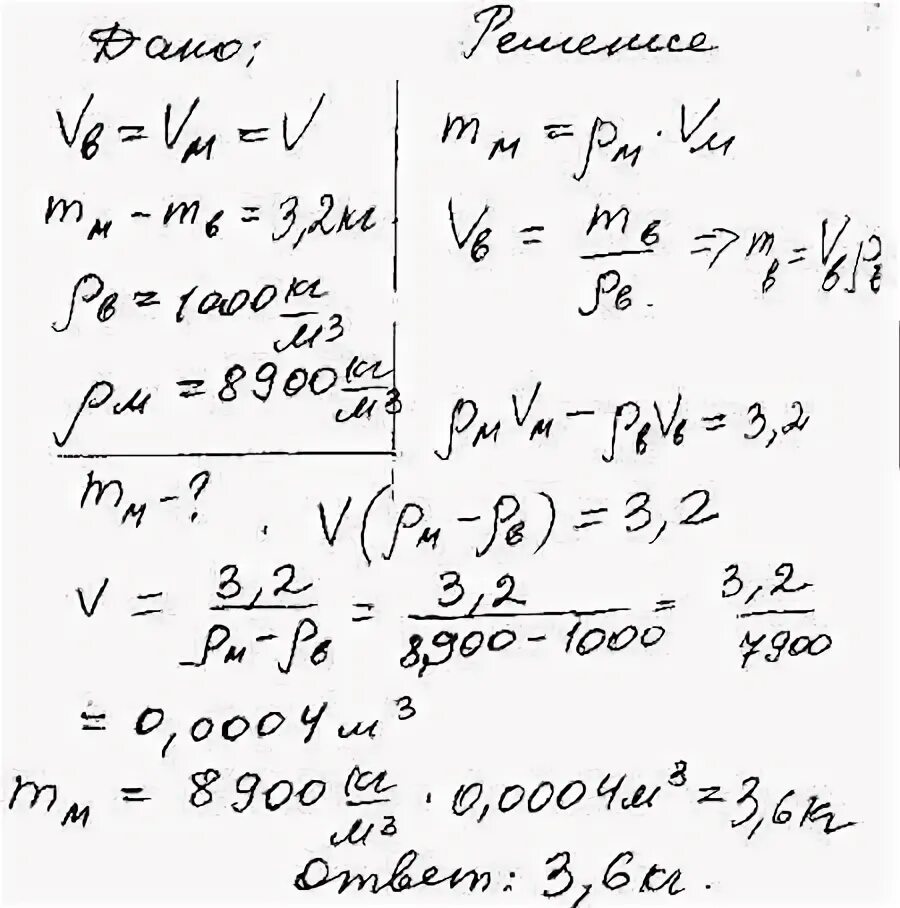 Дано:
V_в = V_м = V
m_м - m_в = 3,2кг
ρ_в = 1000 кг/м³
ρ_м = 8900 кг/м³
m_м - ?
Решение
m_м = ρ_м · V_м
V_в = m_в/ρ_в. => m_в = V_в ρ_в
ρ_м V_м - ρ_в V_в = 3,2
V(ρ_м - ρ_в) = 3,2
V = 3,2/(ρ_м - ρ_в) = 3,2/(8900 - 1000) = 3,2/7900
= 0,0004 м³
m_м = 8900 кг/м³ · 0,0004 м³ = 3,6 кг
Ответ: 3,6 кг.